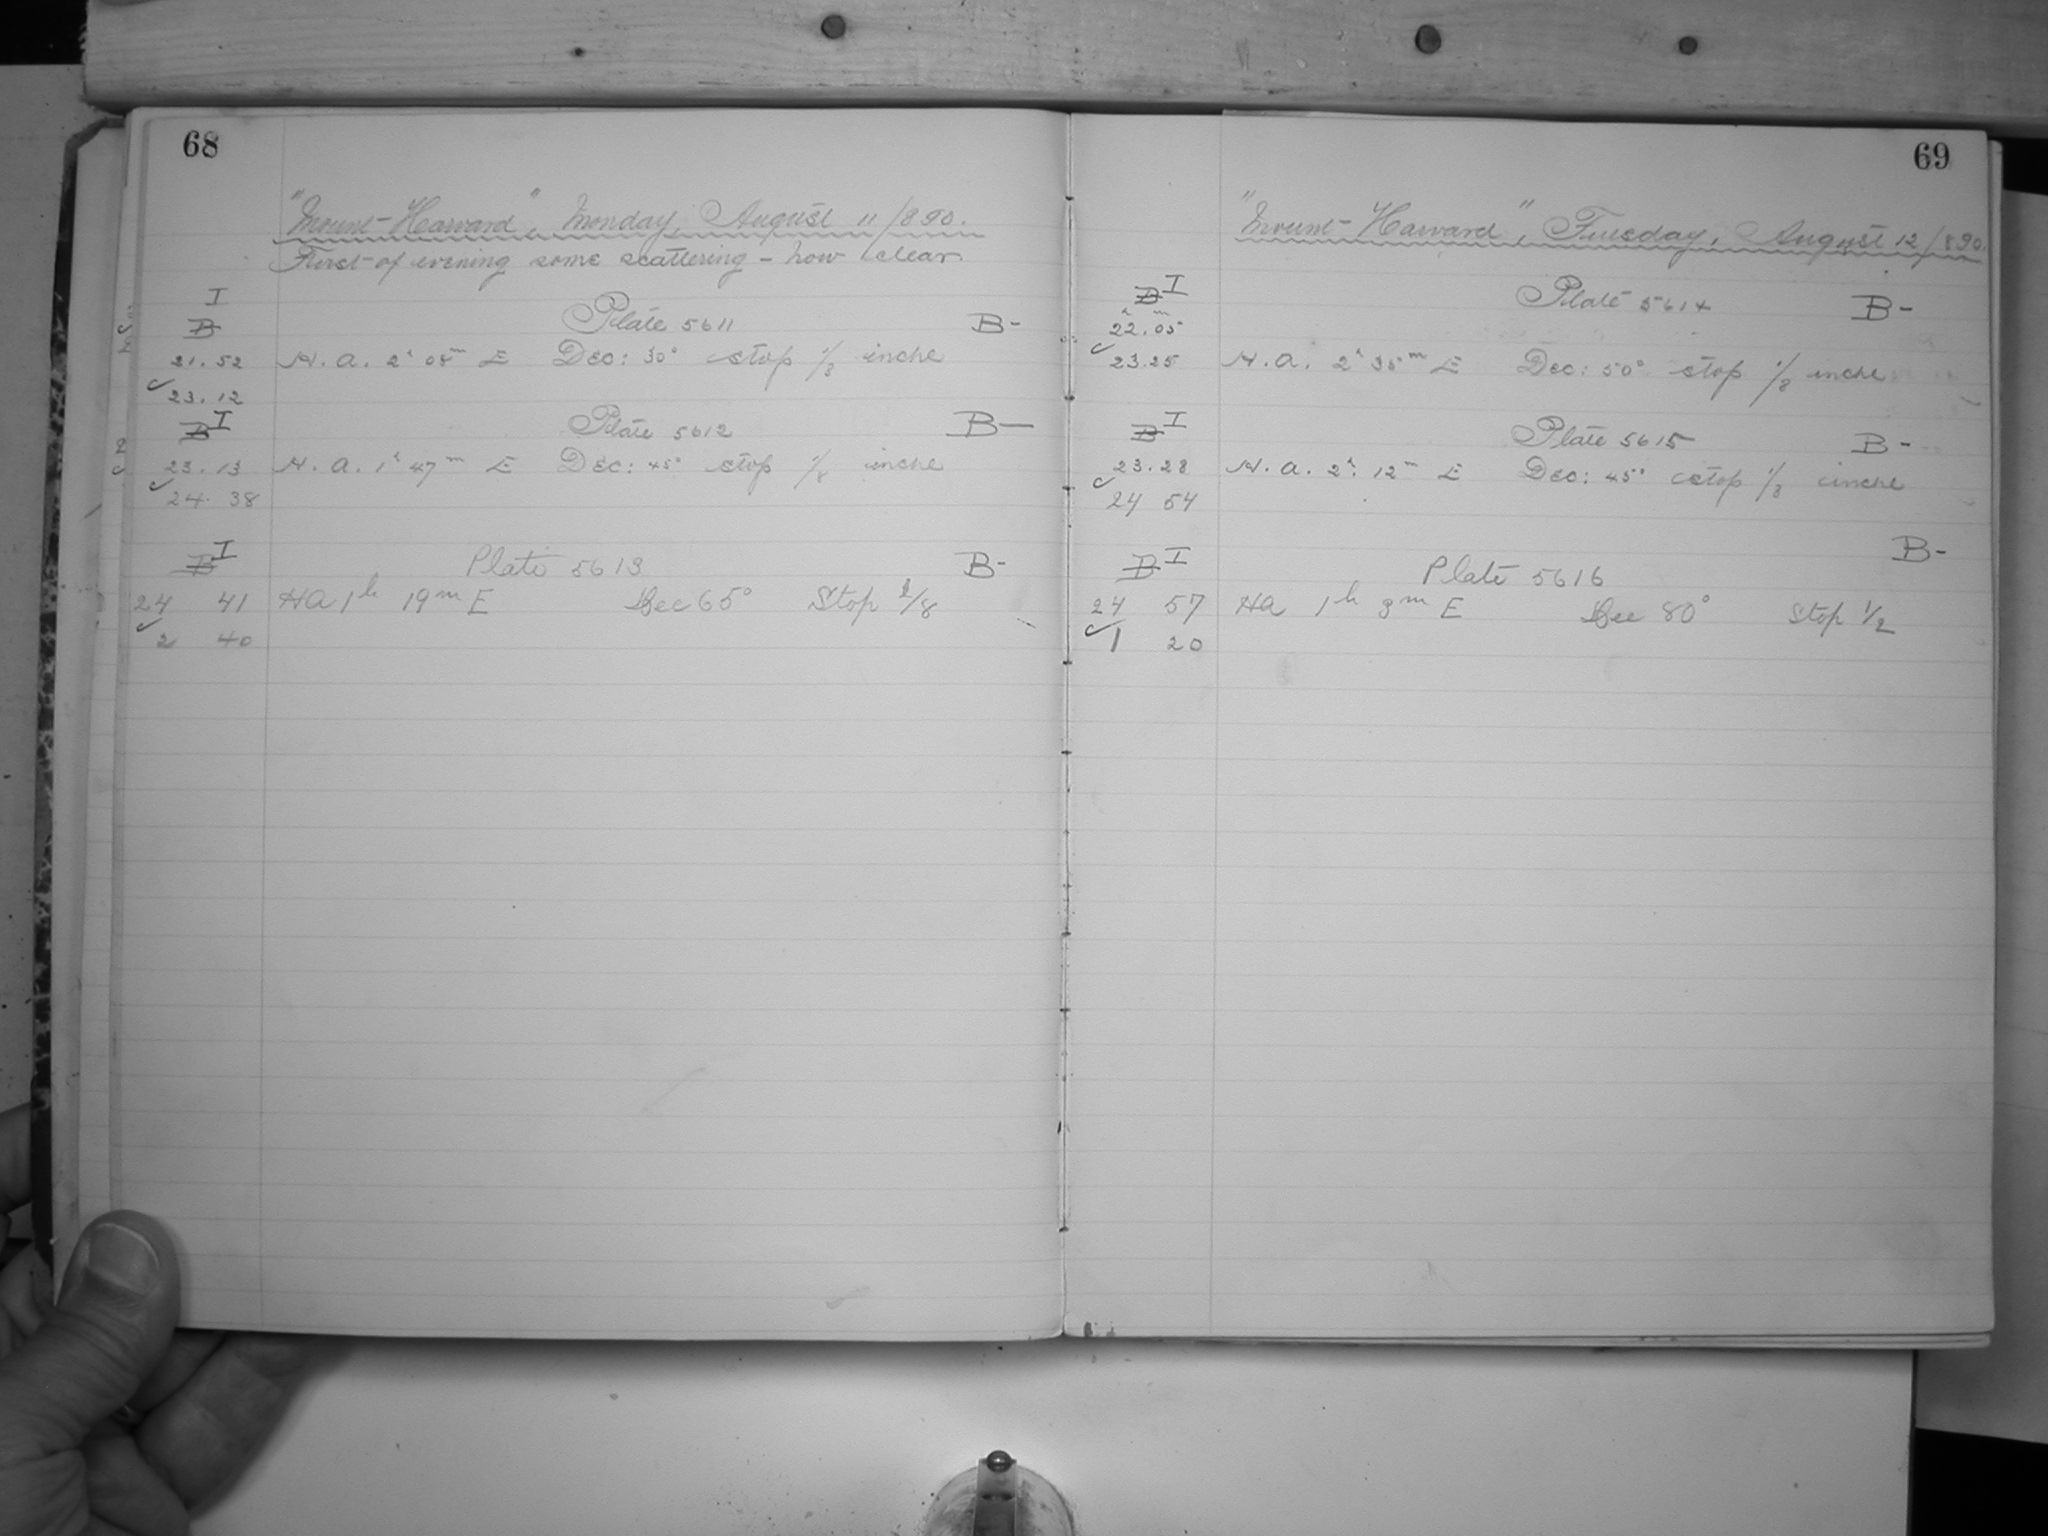 68
"Mount-Harvard", Monday, August 11/890.
First of evening some scattering - now clear
I
B Plate 5611 B-
21.52 H.a. 2h 08m E Dec: 30° stop 1/8 inche
✓
23.12
B I Plate 5612 B-
23.13 H.a. 1h 47m E Dec: 45° stop 1/8 inche
✓
24.38
B I Plate 5613 B-
24 41 HA 1h 19m E Dec 65° Stop 1/8
✓
2 40
69
"Mount-Harvard", Tuesday, August 12/890.
B I Plate 5614 B-
h m
22.05
✓
23.25 H.a. 2h 35m E Dec: 50° stop 1/8 inche
B I Plate 5615 B-
23.28 H.a. 2h: 12m E Dec: 45° stop 1/8 inche
✓
24 54
B-
B I Plate 5616
24 57 HA 1h 3m E Dec 80° Stop 1/2
✓
1 20